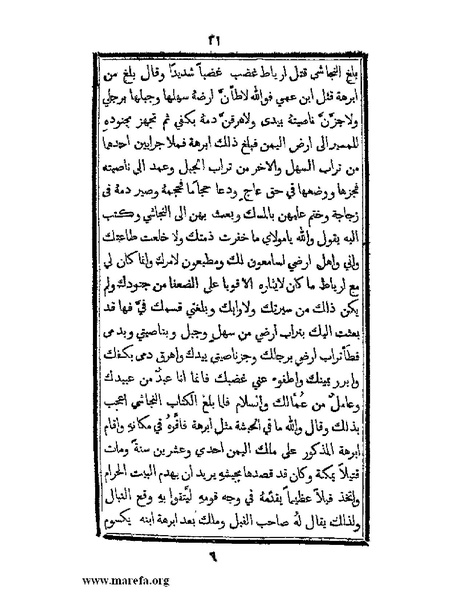 ٤١
بلغ النجاشي قتل ارياط غضب غضباً شديداً وقال بلغ من
ابرهة قتل ابن عمي فوالله لاطأنَّ ارضهُ سهلها وجبلها برجلي
ولاجزنَّ ناصيتهُ بيدي ولاهرقنَّ دمهُ بكفي ثم تجهز بجنودهِ
للمسير الى ارض اليمن فبلغ ذلك ابرهة فملا جرابين احدهما
من تراب السهل والاخر من تراب الجبل وعمد الى ناصيته
فجزها ووضعها في حق عاج ودعا حجاماً فحجمهُ وصير دمهُ في
زجاجة وختم عليهن بالمسك وبعث بهن الى النجاشي وكتب
اليه يقول والله يامولاي ما خفرت ذمتك ولا خلعت طاعتك
واني واهل ارضي لسامعون لك ومطيعون لامرك وانما كان لي
مع ارياط ما كان لايثاره الاقويا على الضعفا من جنودك ولم
يكن ذلك من سيرتك ولارايك وبلغني قسمك فيَّ فها قد
بعثت اليك بتراب ارضي من سهل وجبل وبناصيتي وبدمي
فطأ تراب ارضي برجلك وجز ناصيتي بيدك واهرق دمي بكفك
وابرر يمينك واطفوء عني غضبك فانما انا عبدٌ من عبيدك
وعاملٌ من عُمَّالك والسلام فلما بلغ الكتاب النجاشي اعجب
بذلك وقال والله ما في الحبشة مثل ابرهة فاقرهُ في مكانهِ واقام
ابرهة المذكور على ملك اليمن احدي وعشرين سنةً ومات
قتيلاً بمكة وكان قد قصدها بجيشهِ يريد ان يهدم البيت الحرام
واتخذ فيلاً عظيماً يقدّمهُ في وجه قومهِ ليتقوا بهِ وقع النبال
ولذلك يقال لهُ صاحب الفيل وملك بعد ابرهة ابنه يكسوم
٦
www.marefa.org